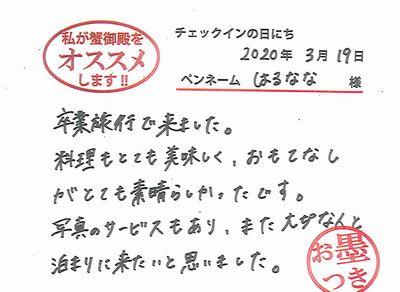 私が蟹御殿を
オススメ
します!!
チェックインの日にち
2020年 3月 19日
ペンネーム はるなな 様
卒業旅行で来ました。
料理もとても美味しく、おもてなし
がとても素晴らしかったです。
写真のサービスもあり、また大切な人と
泊まりに来たいと思いました。
お墨つき